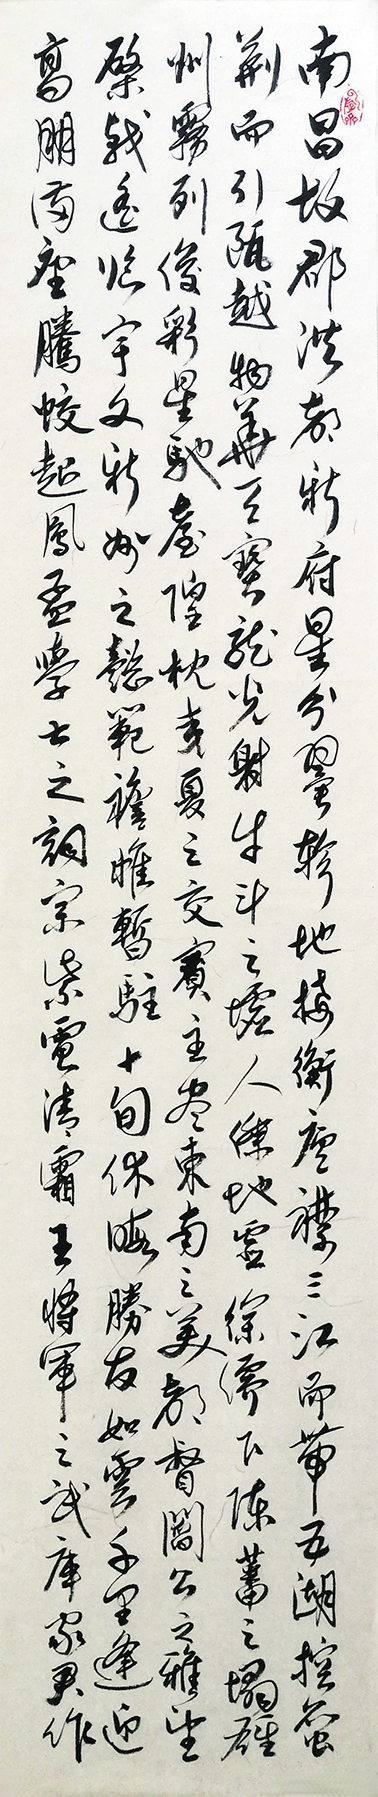 南昌故郡洪都新府星分翼軫地接衡廬襟三江而帶五湖控蠻
荊而引甌越物華天寶龍光射牛斗之墟人傑地靈徐孺下陳蕃之榻雄
州霧列俊彩星馳臺隍枕夷夏之交賓主盡東南之美都督閻公之雅望
棨戟遙臨宇文新州之懿範襜帷暫駐十旬休暇勝友如雲千里逢迎
高朋滿座騰蛟起鳳孟學士之詞宗紫電清霜王將軍之武庫家君作